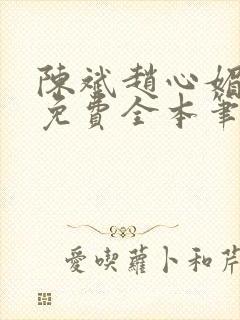 陳斌趙心媚
免費全本筆
愛喫蘿卜和芹